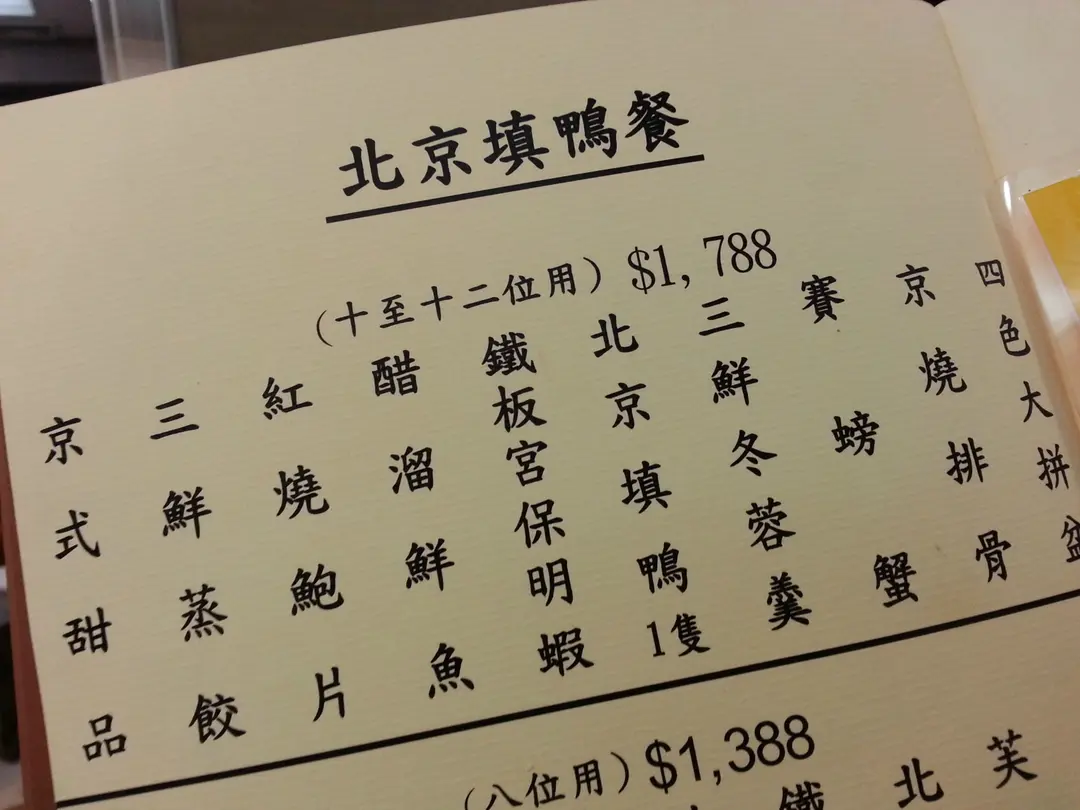 北京填鴨餐
(十至十二位用) $1,788
四色大拼盆
京燒排骨
賽螃蟹
三鮮冬蓉羹
北京填鴨1隻
鐵板宮保明蝦
醋溜鮮魚
紅燒鮑片
三鮮蒸餃
京式甜品
(八位用) $1,388
芙
北
鐵